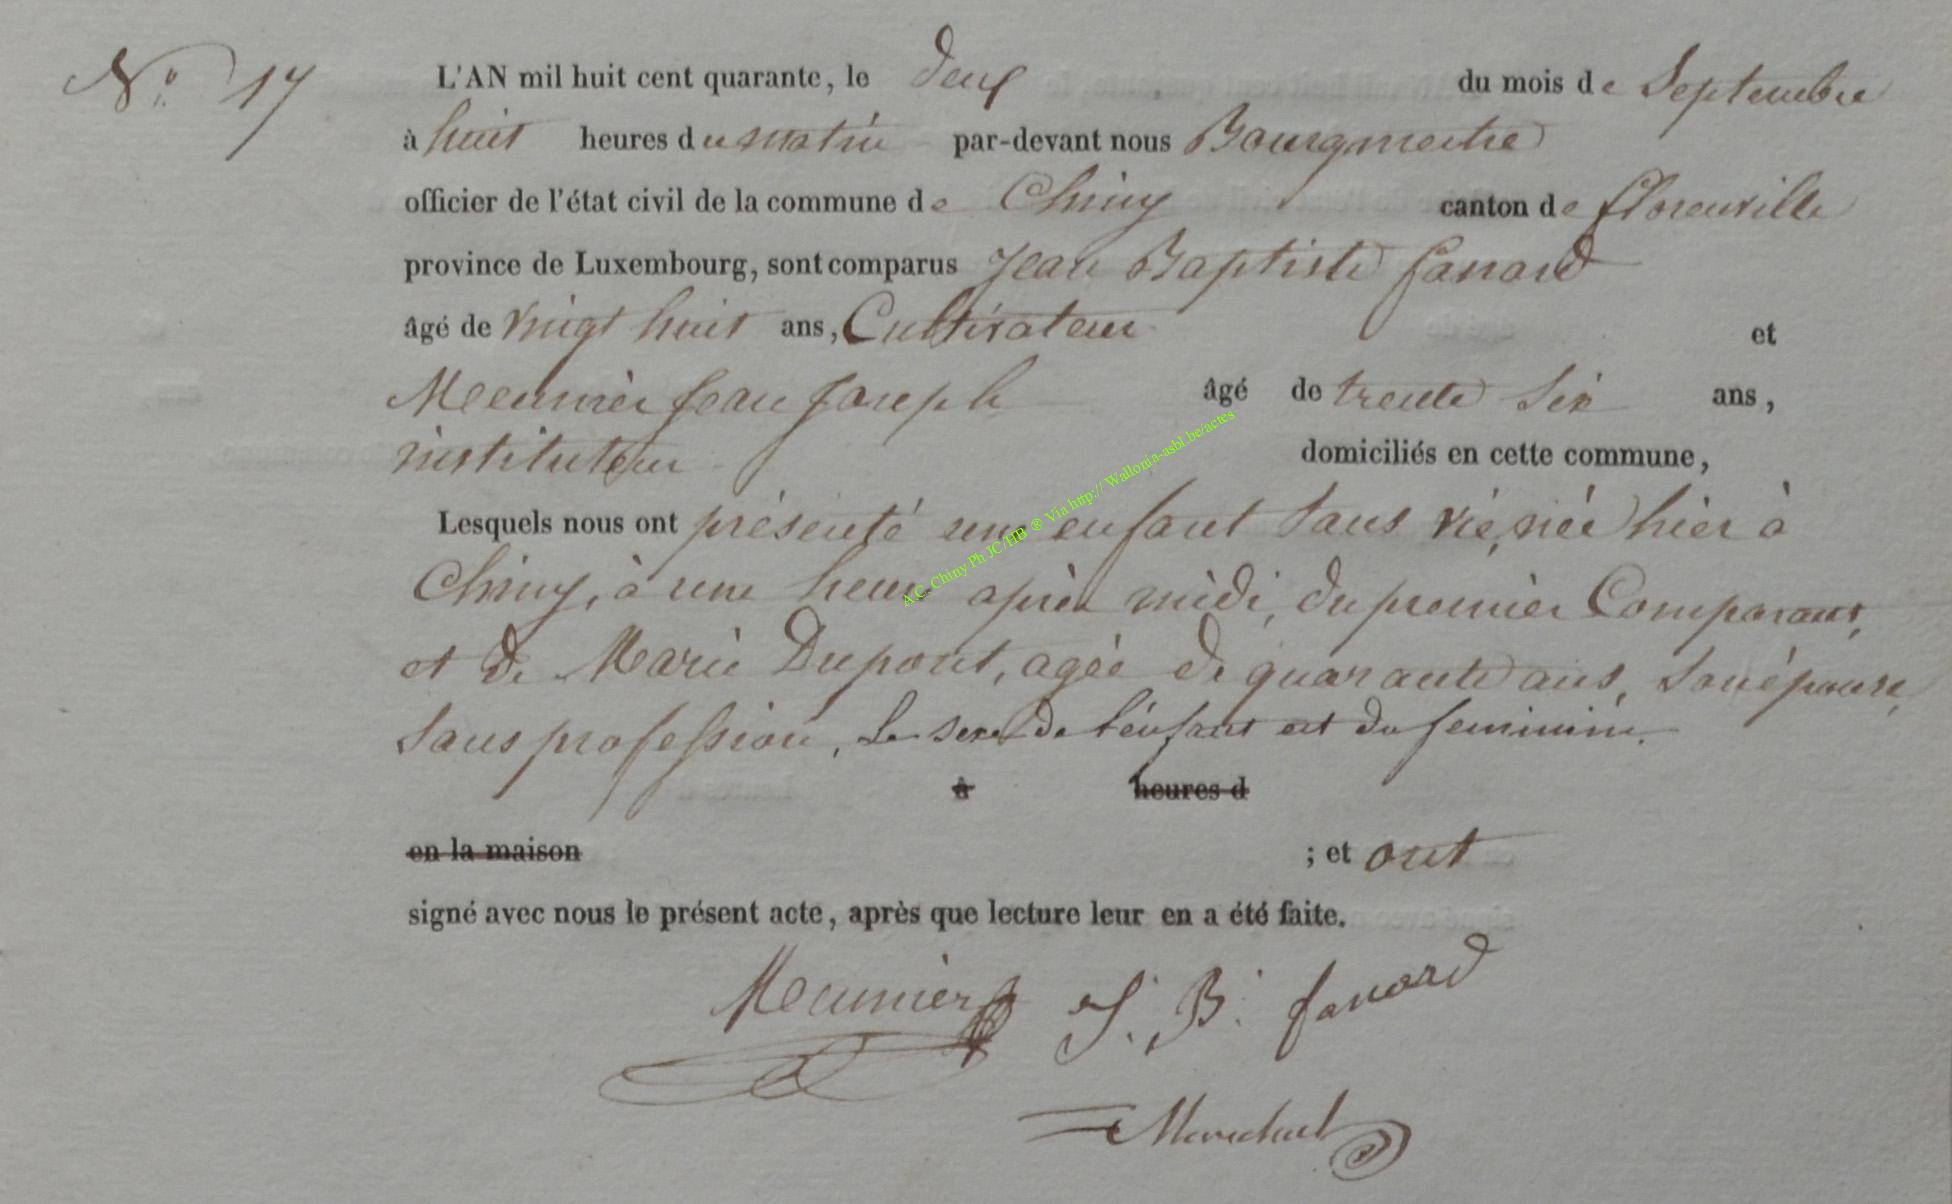 N.º 17
L'AN mil huit cent quarante, le deux du mois de Septembre
à huit heures du matin par-devant nous Bourgmestre
officier de l'état civil de la commune de Chiny canton de florenville
province de Luxembourg, sont comparus Jean Baptiste fanard
âgé de vingt huit ans, Cultivateur et
Meunier Jean Joseph âgé de trente Six ans,
instituteur domiciliés en cette commune,
Lesquels nous ont présenté un enfant Sans vie, née hier à
Chiny, à une heure après midi, du premier Comparant,
et de Marie Dupont, agée de quarante ans, Son épouse,
Sans profession, Le sexe de l'enfant est du feminin.
à heures d
en la maison ; et ont
signé avec nous le présent acte, après que lecture leur en a été faite.
Meunier J. B. fanard
Marechal
A.C. Chiny Ph JC/HB ® Via http:// Wallonia-asbl.be/actes